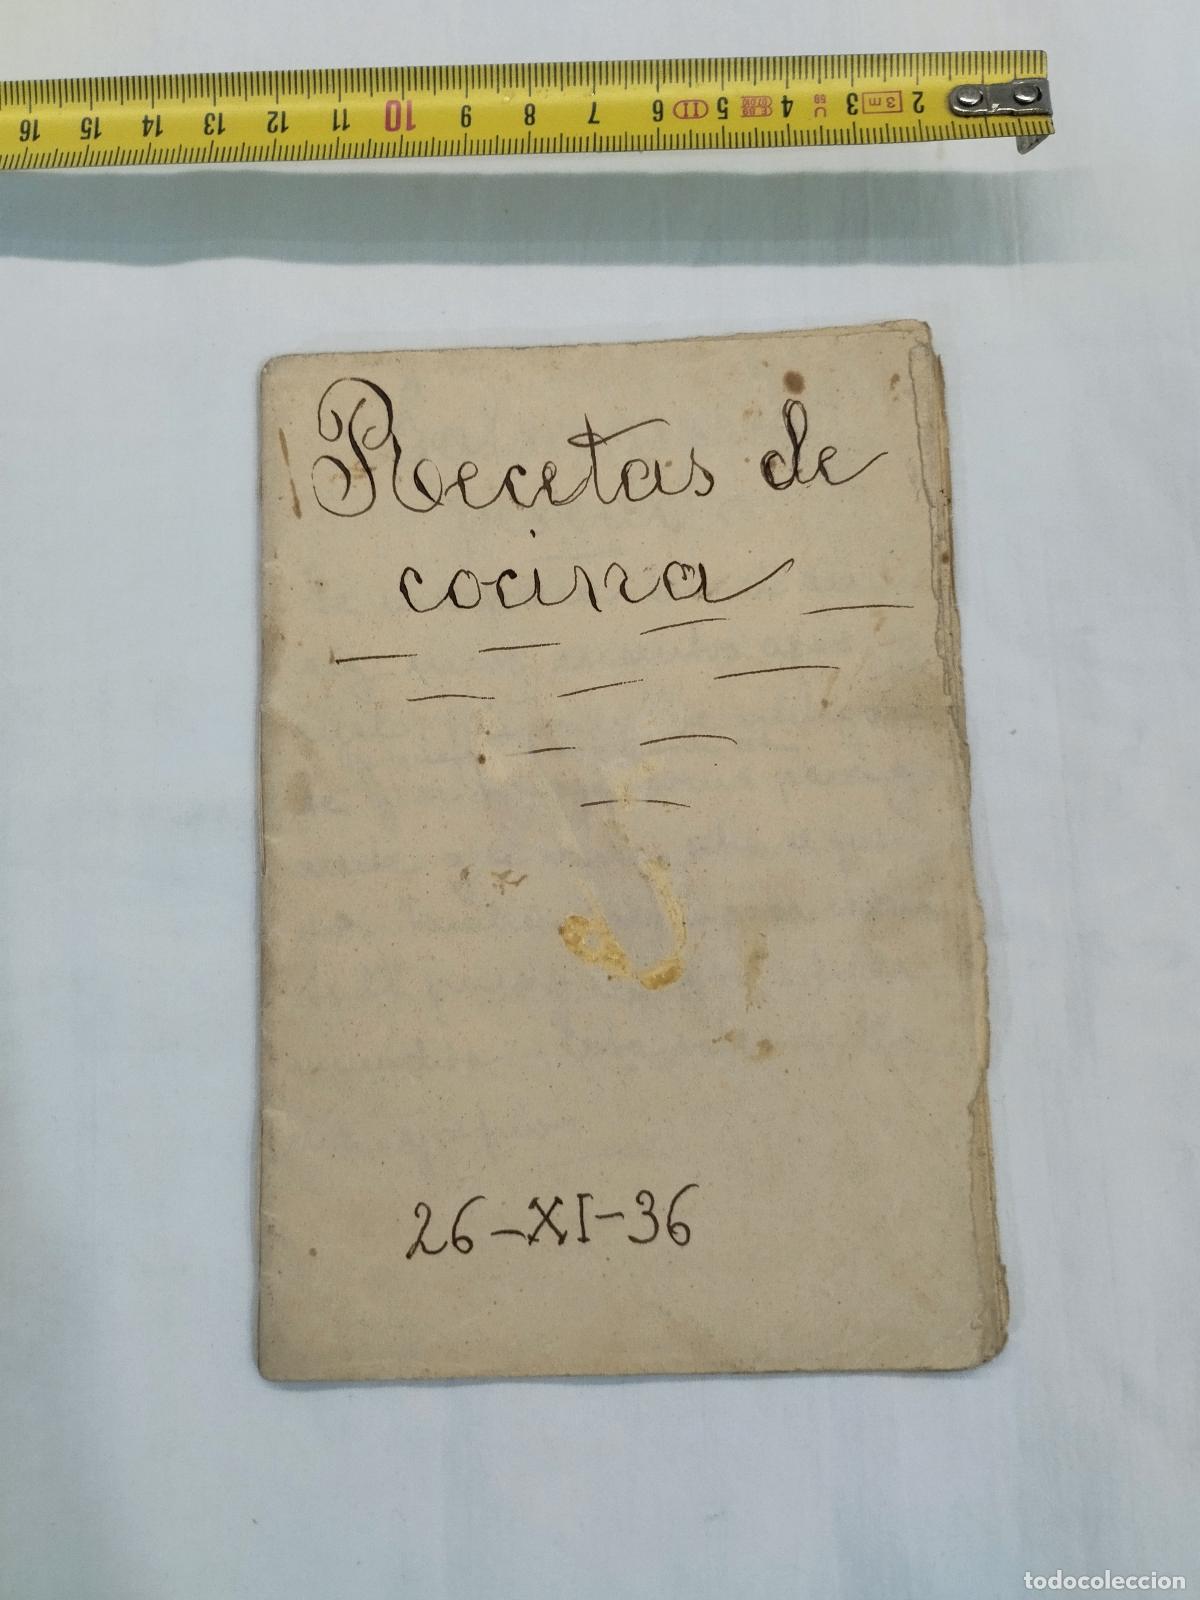 16 15 14 13 12 11 10 9 8 7 6 II 5 4 3 3m 2
Recetas de
cocina
26-XI-36
todocoleccion